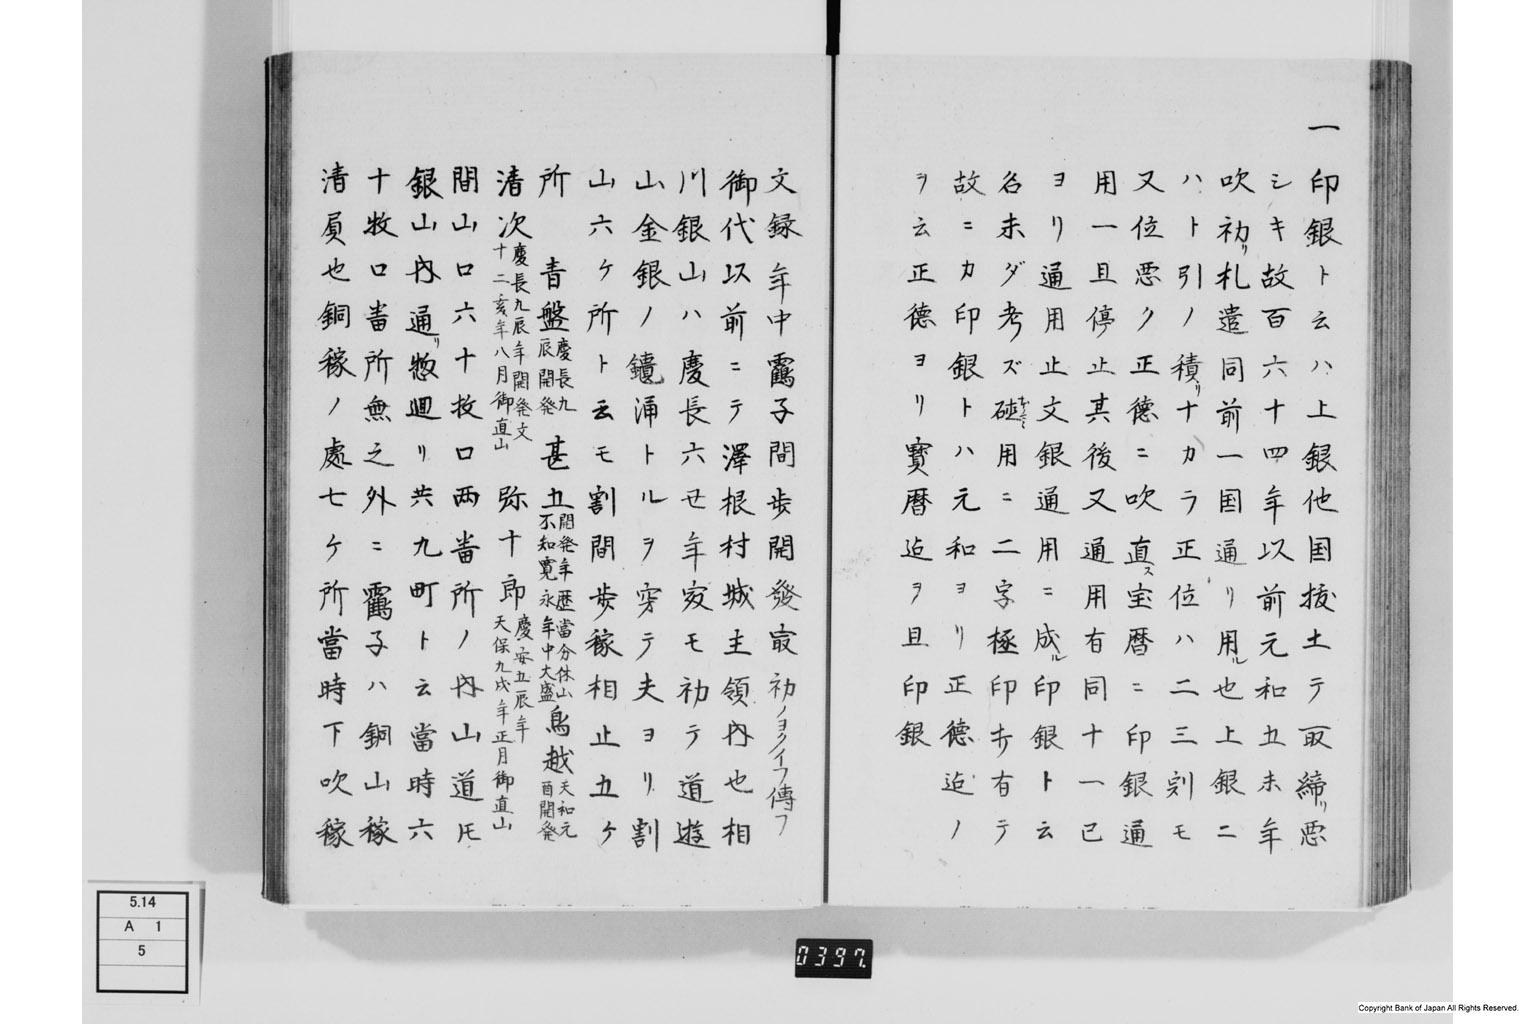 一
印銀ト云ハ上銀他国抜土テ取締リ悪
シキ故百六十四年以前元和五未年
吹初リ札遣同前一国通リ用ル也上銀ニ
ハト引ノ積リナカラ正位ハ二三割モ
又位悪ク正徳ニ吹直ス宝暦ニ印銀通
用一旦停止其後又通用有同十一己
ヨリ通用止文銀通用ニ成ル印銀ト云
名未ダ考ズ礎用ニ二字極印ヲ有テ
故ニカ印銀トハ元和ヨリ正徳迄ノ
ヲ云正徳ヨリ寳暦迄ヲ且印銀
文録年中靏子間歩開發最初ノヨクイフ傳フ
御代以前ニテ澤根村城主領内也相
川銀山ハ慶長六丑年㝡モ初テ道遊
山金銀ノ鑓涌トルヲ穿テ夫ヨリ割
山六ケ所ト云モ割間歩稼相止五ケ
所 青盤慶長九辰開発 甚五開発年歴當分休山不知寛永年中大盛 鳥越天和元酉開発
清次慶長九辰年開発文十二亥年八月御直山 弥十郎慶安五辰年天保九戌年正月御直山
間山口六十枚口両番所ノ内山道圧
銀山内通リ惣廻リ共九町ト云當時六
十枚口番所無之外ニ靏子ハ銅山稼
清員也銅稼ノ處七ケ所當時下吹稼
5.14
A 1
5
0397
Copyright Bank of Japan All Rights Reserved.